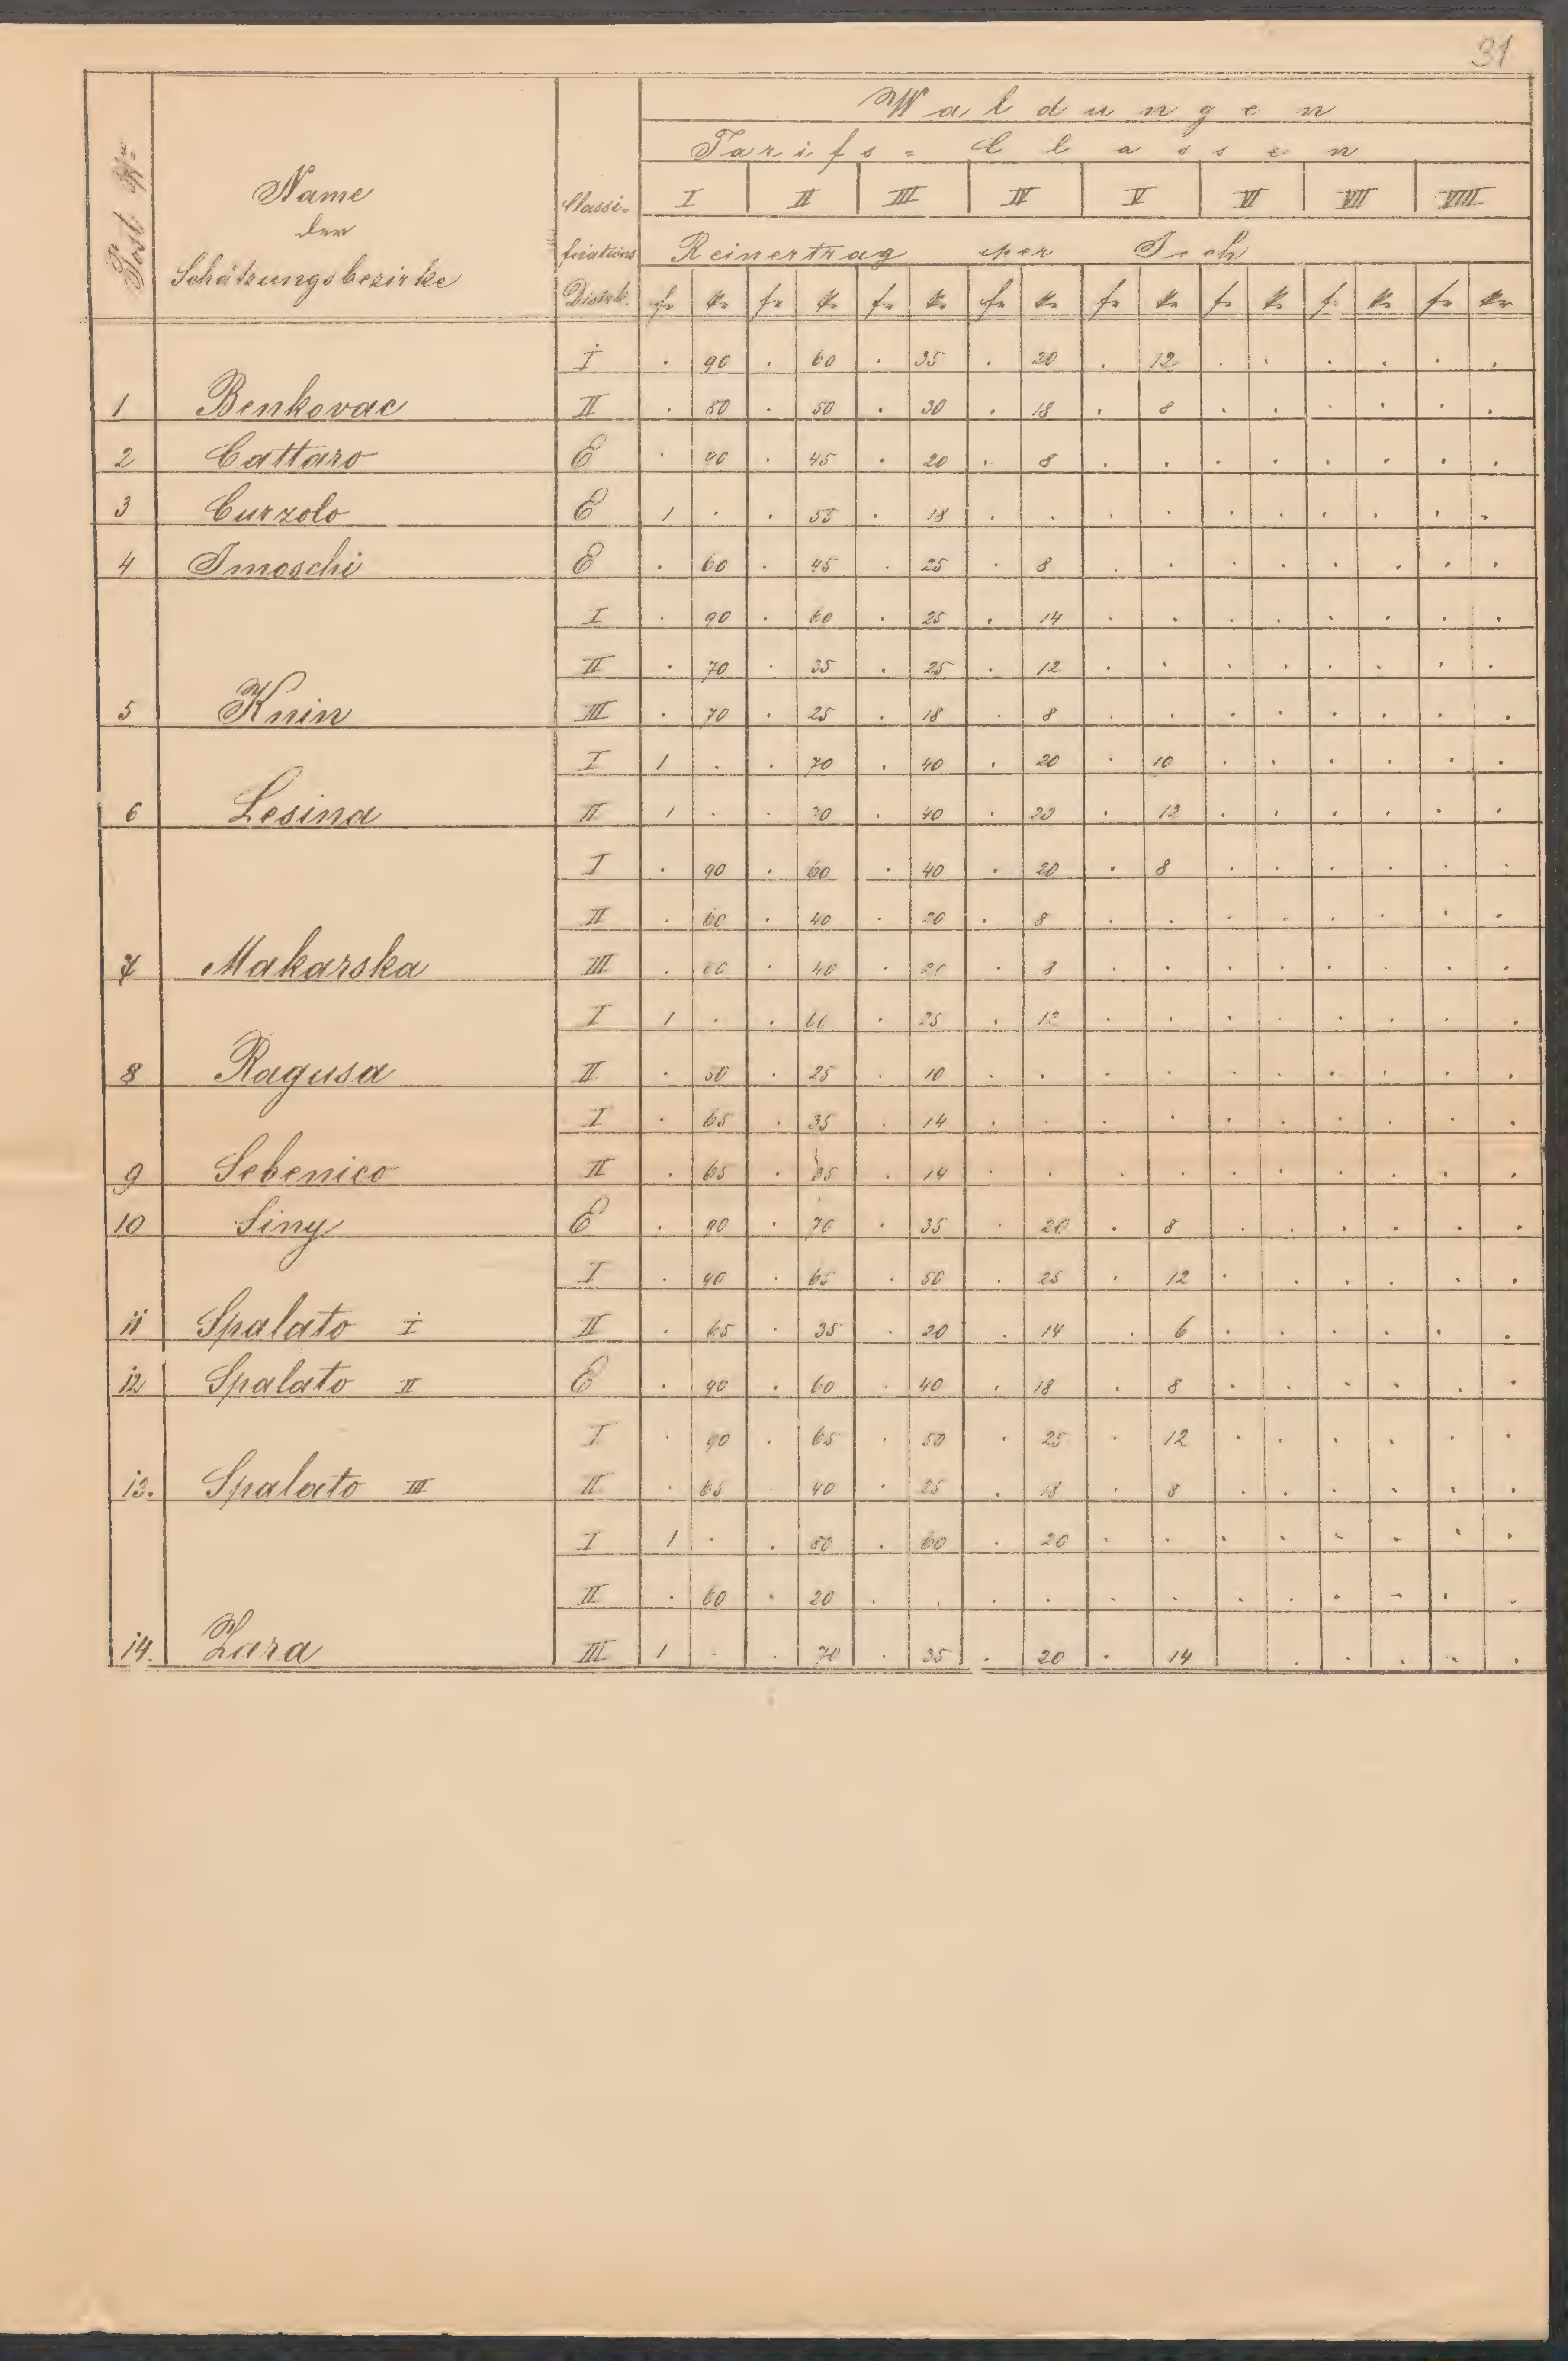 31
Waldungen
Tarifs=Classen
Post Nr=
Name
der
Schätzungsbezirke
Classi-
fications
Distrb.
I II III IV V VI VII VIII
Reinertrag per Joch
fr kr fr kr fr kr fr kr fr kr fr kr fr kr fr kr
I . 90 . 60 . 35 . 20 . 12 . . . . . .
1 Benkovac II . 80 . 50 . 30 . 18 . 8 . . . . . .
2 Cattaro E . 90 . 45 . 20 . 8 . . . . . . . .
3 Curzolo E 1 . . 55 . 18 . . . . . . . . . .
4 Imoschi E . 60 . 45 . 25 . 8 . . . . . . . .
I . 90 . 60 . 25 . 14 . . . . . . . .
II . 70 . 35 . 25 . 12 . . . . . . . .
5 Knin III . 70 . 25 . 18 . 8 . . . . . . . .
I 1 . . 70 . 40 . 20 . 10 . . . . . .
6 Lesina II 1 . . 70 . 40 . 20 . 12 . . . . . .
I . 90 . 60 . 40 . 20 . 8 . . . . . .
II . 60 . 40 . 20 . 8 . . . . . . . .
7 Makarska III . 60 . 40 . 20 . 8 . . . . . . . .
I 1 . . 60 . 25 . 12 . . . . . . . .
8 Ragusa II . 50 . 25 . 10 . . . . . . . . . .
I . 65 . 35 . 14 . . . . . . . . . .
9 Sebenico II . 65 . 35 . 14 . . . . . . . . . .
10 Siny E . 90 . 70 . 35 . 20 . 8 . . . . . .
I . 90 . 65 . 50 . 25 . 12 . . . . . .
11 Spalato I II . 65 . 35 . 20 . 14 . 6 . . . . . .
12 Spalato II E . 90 . 60 . 40 . 18 . 8 . . . . . .
I . 90 . 65 . 50 . 25 . 12 . . . . . .
13. Spalato III II . 65 40 . 25 . 18 . 8 . . . . . .
I 1 . . 80 . 60 . 20 . . . . . . . .
II . 60 . 20 . . . . . . . . . . . .
14. Zara III 1 . . 70 . 35 . 20 . 14 . . . . .